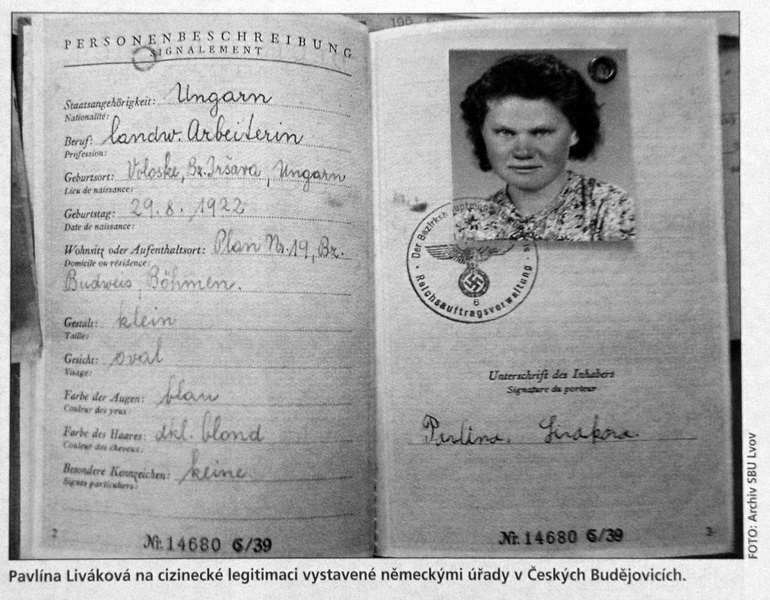 PERSONENBESCHREIBUNG
SIGNALEMENT
Staatsangehörigkeit: Ungarn
Nationalité:
Beruf: landw. Arbeiterin
Profession:
Geburtsort: Voloske, Bz. Iršava, Ungarn
Lieu de naissance:
Geburtstag: 29.8.1922
Date de naissance:
Wohnsitz oder Aufenthaltsort: Plan Nr. 19, Bz.
Domicile ou résidence:
Budweis, Böhmen.
Gestalt: klein
Taille:
Gesicht: oval
Visage:
Farbe der Augen: blau
Couleur des yeux:
Farbe des Haares: dkl. blond
Couleur des cheveux:
Besondere Kennzeichen: keine
Signes particuliers:
2
Nr. 14680 G/39
Der Bezirkshauptmann
Reichsauftragsverwaltung
6
Unterschrift des Inhabers
Signature du porteur
Pavlina
Nr. 14680 G/39
3
FOTO: Archiv SBU Lvov
Pavlína Liváková na cizinecké legitimaci vystavené německými úřady v Českých Budějovicích.